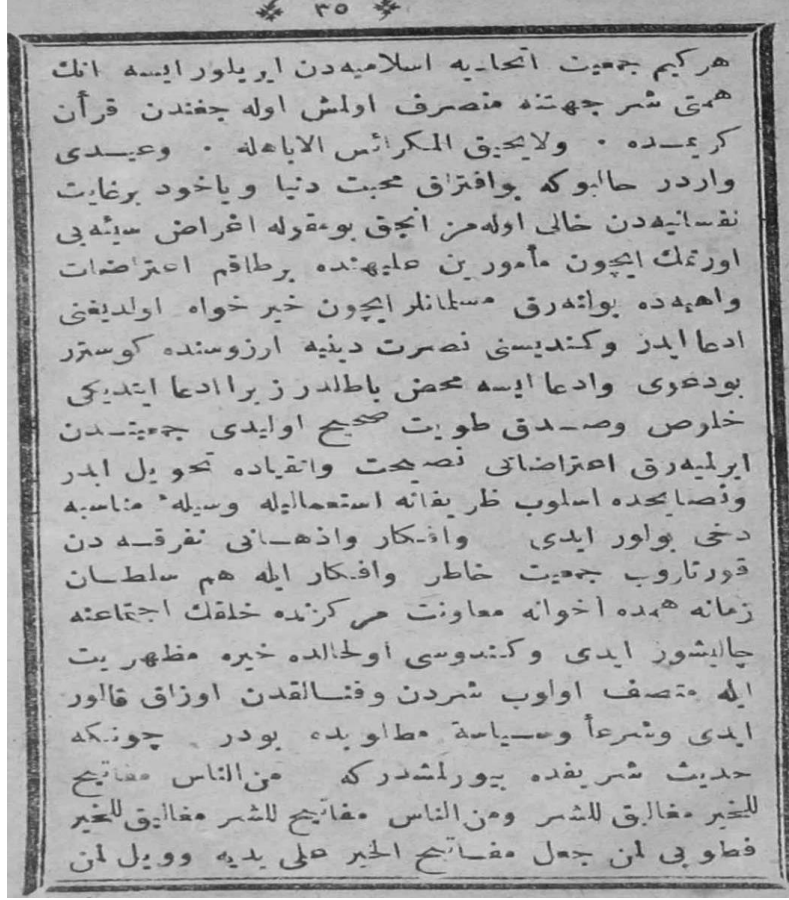 ٣٥
هركيم جمعيت اتحاديه اسلاميه‌دن ايريلور ايسه انك
همتی شر جهتنه منصرف اولمش اوله جغندن قرأن
كريمده ٠ ولايحيق المكرالسئ الاباهله ٠ وعيدی
واردر حالبوكه بوافتراق محبت دنيا وياخود برغايت
نفسانيه‌دن خالی اوله‌مز انجق بومقوله اغراض سيئه‌يی
اورتمك ايچون مأمورين عليهنده برطاقم اعتراضات
واهيه‌ده بولنه‌رق مسلمانلر ايچون خير خواه اولديغنی
ادعا ايدر وكنديسنی نصرت دينيه ارزوسنده كوسترر
بودعوی وادعا ايسه محض باطلدر زيرا ادعا ايتديكی
خلوص وصدق طويت صحيح اولیدی جمعيتدن
ايرلميه‌رق اعتراضاتی نصيحت وانقياده تحويل ايدر
ونصايحده اسلوب ظريفانه استعماليله وسيلهٔ مناسبه
دخی بولور ايدی وافكار واذهانی تفرقه دن
قورتاروب جمعيت خاطر وافكار ايله هم سلطان
زمانه همده اخوانه معاونت مركزنده خلقك اجتماعنه
چاليشور ايدی وكندوسی اولحالده خيره مظهريت
ايله متصف اولوب شردن وفتنالقدن اوزاق قالور
ايدی وشرعاً وسياسة مطلوبده بودر چونكه
حديث شريفده بيورلمشدركه من الناس مفاتيح
للخير مغاليق للشر ومن الناس مفاتيح للشر مغاليق للخير
فطوبی لمن جعل مفاتيح الخير علی يديه وويل لمن